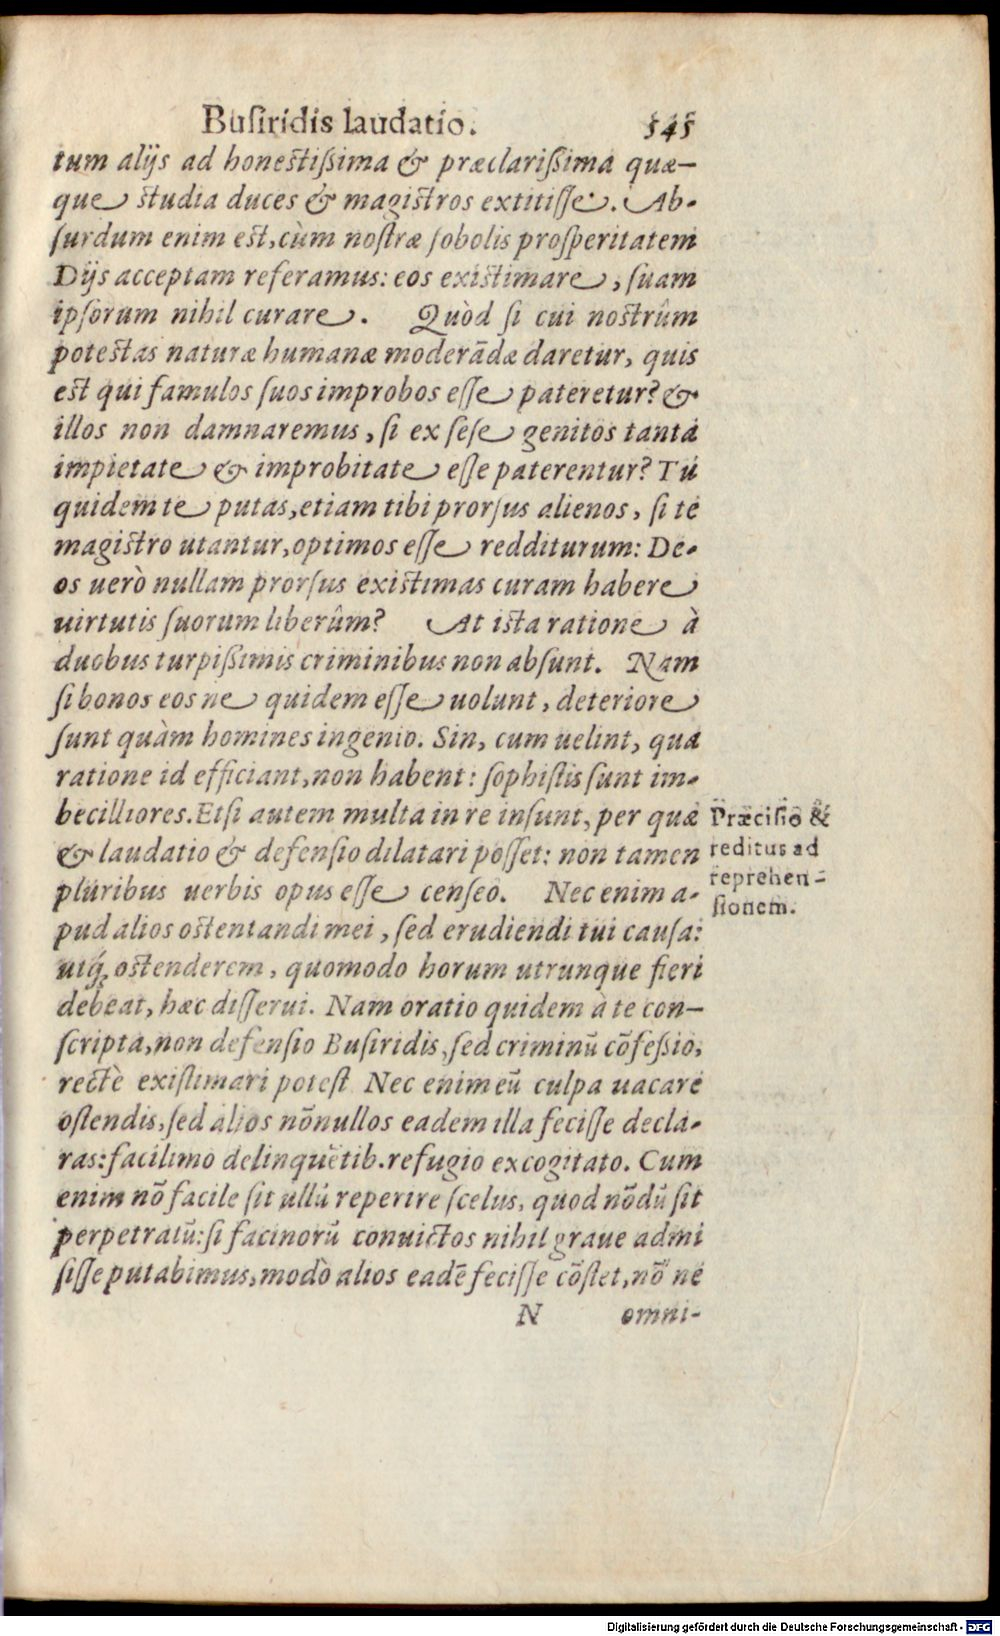 Busiridis laudatio. 545
tum alijs ad honestißima & præclarißima quæ-
que studia duces & magistros extitisse. Ab-
surdum enim est, cùm nostræ sobolis prosperitatem
Dijs acceptam referamus: eos existimare, suam
ipsorum nihil curare. Quòd si cui nostrûm
potestas naturæ humanæ moderãdæ daretur, quis
est qui famulos suos improbos esse pateretur? &
illos non damnaremus, si ex sese genitos tanta
impietate & improbitate esse paterentur? Tu
quidem te putas, etiam tibi prorsus alienos, si te
magistro utantur, optimos esse redditurum: De-
os uerò nullam prorsus existimas curam habere
uirtutis suorum liberûm? At ista ratione à
duobus turpißimis criminibus non absunt. Nam
si bonos eos ne quidem esse uolunt, deteriore
sunt quàm homines ingenio. Sin, cum uelint, qua
ratione id efficiant, non habent: sophistis sunt im-
becilliores. Etsi autem multa in re insunt, per quæ
& laudatio & defensio dilatari posset: non tamen
pluribus uerbis opus esse censeo. Nec enim a-
pud alios ostentandi mei, sed erudiendi tui causa:
utq; ostenderem, quomodo horum utrunque fieri
debeat, hæc disserui. Nam oratio quidem à te con-
scripta, non defensio Busiridis, sed criminũ cõfeßio,
rectè existimari potest Nec enim eũ culpa uacare
ostendis, sed alios nõnullos eadem illa fecisse decla-
ras: facilimo delinquẽtib. refugio excogitato. Cum
enim nõ facile sit ullũ reperire scelus, quod nõdũ sit
perpetratũ: si facinorũ conuictos nihil graue admi
sisse putabimus, modò alios eadẽ fecisse cõstet, nõ ne
N omni-
Præcisio &
reditus ad
reprehen-
sionem.
Digitalisierung gefördert durch die Deutsche Forschungsgemeinschaft - DFG